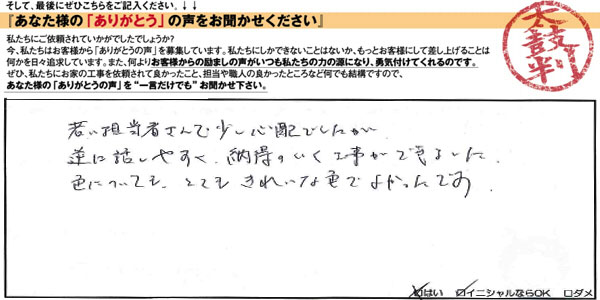 そして、最後にぜひこちらをご記入ください。↓↓
『あなた様の「ありがとう」の声をお聞かせください』
私たちにご依頼されていかがでしたでしょうか?
今、私たちはお客様から「ありがとうの声」を募集しています。私たちにしかできないことはないか、もっとお客様にして差し上げることは
何かを日々追求しています。また、何よりお客様からの励ましの声がいつも私たちの力の源になり、勇気付けてくれるのです。
ぜひ、私たちにお家の工事を依頼されて良かったこと、担当や職人の良かったところなど何でも結構ですので、
あなた様の「ありがとうの声」を“一言だけでも”お聞かせ下さい。
太鼓判
若い担当者さんで少し心配でしたが
逆に話しやすく、納得のいく工事ができました。
色についても、とてもきれいな色でよかったです。
☑はい ☑イニシャルならOK □ダメ